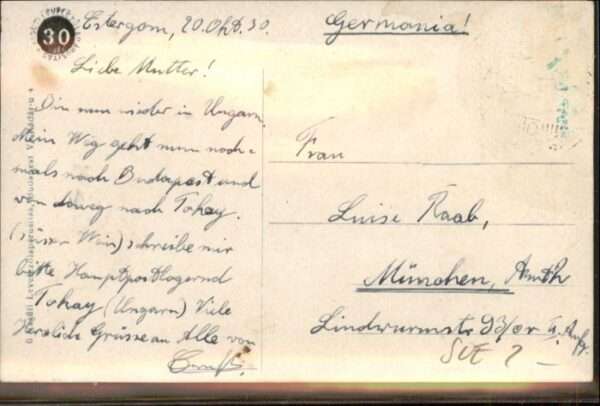 30
Estergom, 20. Okt. 30.
Germania!
Liebe Mutter!
Bin nun wieder in Ungarn.
Mein Weg geht nun noch=
mals nach Budapest und
von daweg nach Tokay.
Wein) schreibe mir
bitte Hauptpostlagernd
Tokay (Ungarn) Viele
Herzliche Grüsse an Alle von
Frau
Luise Raab,
München,
Lindwurmstr. 93/